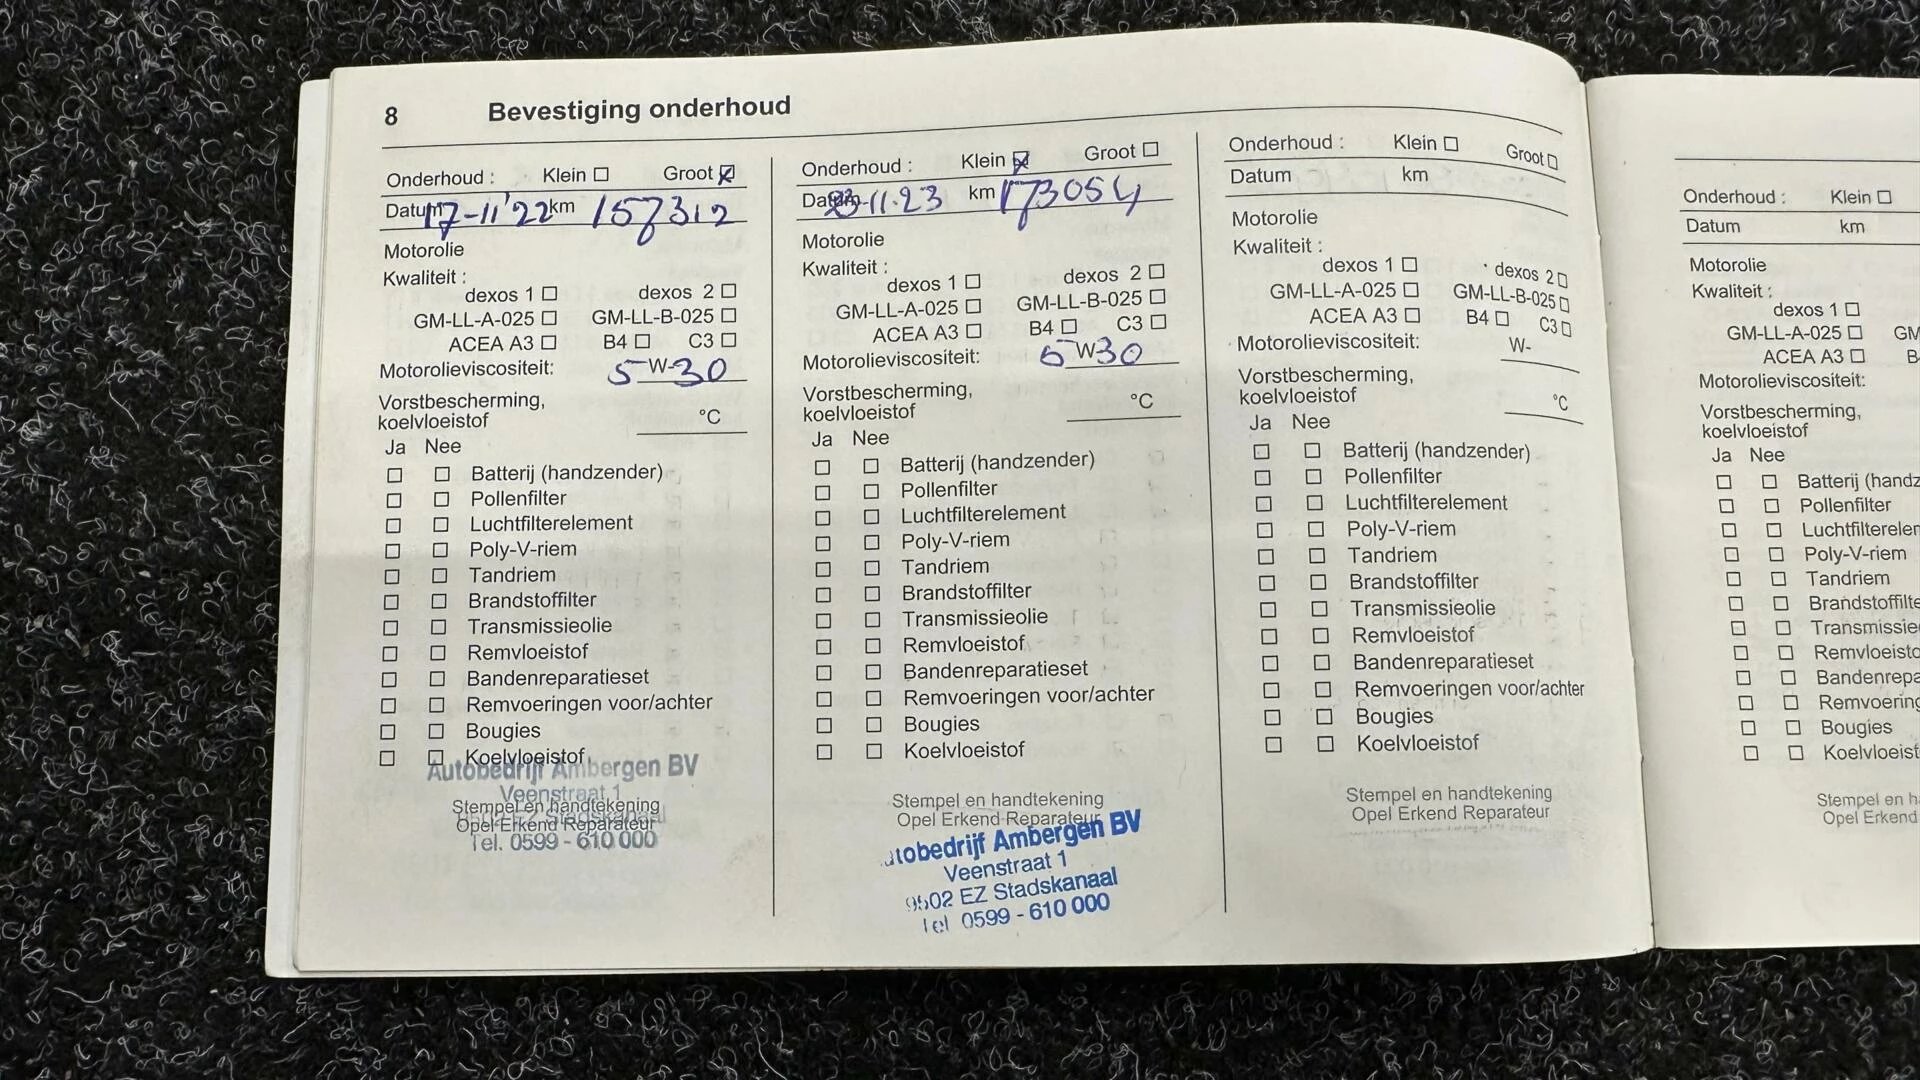 8 Bevestiging onderhoud
Onderhoud : Klein ☐ Groot ☒
Datum 17-11'22 km 157312
Motorolie
Kwaliteit :
dexos 1 ☐ dexos 2 ☐
GM-LL-A-025 ☐ GM-LL-B-025 ☐
ACEA A3 ☐ B4 ☐ C3 ☐
Motorolieviscositeit: 5 W-30
Vorstbescherming,
koelvloeistof °C
Ja Nee
☐ ☐ Batterij (handzender)
☐ ☐ Pollenfilter
☐ ☐ Luchtfilterelement
☐ ☐ Poly-V-riem
☐ ☐ Tandriem
☐ ☐ Brandstoffilter
☐ ☐ Transmissieolie
☐ ☐ Remvloeistof
☐ ☐ Bandenreparatieset
☐ ☐ Remvoeringen voor/achter
☐ ☐ Bougies
☐ ☐ Koelvloeistof
Autobedrijf Ambergen BV
Veenstraat 1
Stempel en handtekening
Stadskanaal
Opel Erkend Reparateur
Tel. 0599 - 610 000
Onderhoud : Klein ☒ Groot ☐
Datum -11-23 km 173054
Motorolie
Kwaliteit :
dexos 1 ☐ dexos 2 ☐
GM-LL-A-025 ☐ GM-LL-B-025 ☐
ACEA A3 ☐ B4 ☐ C3 ☐
Motorolieviscositeit: 5 W-30
Vorstbescherming,
koelvloeistof °C
Ja Nee
☐ ☐ Batterij (handzender)
☐ ☐ Pollenfilter
☐ ☐ Luchtfilterelement
☐ ☐ Poly-V-riem
☐ ☐ Tandriem
☐ ☐ Brandstoffilter
☐ ☐ Transmissieolie
☐ ☐ Remvloeistof
☐ ☐ Bandenreparatieset
☐ ☐ Remvoeringen voor/achter
☐ ☐ Bougies
☐ ☐ Koelvloeistof
Stempel en handtekening
Opel Erkend Reparateur
tobedrijf Ambergen BV
Veenstraat 1
9502 EZ Stadskanaal
Tel 0599 - 610 000
Onderhoud : Klein ☐ Groot ☐
Datum km
Motorolie
Kwaliteit :
dexos 1 ☐ dexos 2 ☐
GM-LL-A-025 ☐ GM-LL-B-025 ☐
ACEA A3 ☐ B4 ☐ C3 ☐
Motorolieviscositeit: W-
Vorstbescherming,
koelvloeistof °C
Ja Nee
☐ ☐ Batterij (handzender)
☐ ☐ Pollenfilter
☐ ☐ Luchtfilterelement
☐ ☐ Poly-V-riem
☐ ☐ Tandriem
☐ ☐ Brandstoffilter
☐ ☐ Transmissieolie
☐ ☐ Remvloeistof
☐ ☐ Bandenreparatieset
☐ ☐ Remvoeringen voor/achter
☐ ☐ Bougies
☐ ☐ Koelvloeistof
Stempel en handtekening
Opel Erkend Reparateur
Onderhoud : Klein ☐
Datum km
Motorolie
Kwaliteit :
dexos 1 ☐
GM-LL-A-025 ☐ GM
ACEA A3 ☐ B
Motorolieviscositeit:
Vorstbescherming,
koelvloeistof
Ja Nee
☐ ☐ Batterij (handz
☐ ☐ Pollenfilter
☐ ☐ Luchtfilterelem
☐ ☐ Poly-V-riem
☐ ☐ Tandriem
☐ ☐ Brandstoffilte
☐ ☐ Transmissie
☐ ☐ Remvloeisto
☐ ☐ Bandenrepa
☐ ☐ Remvoering
☐ ☐ Bougies
☐ ☐ Koelvloeist
Stempel en h
Opel Erkend